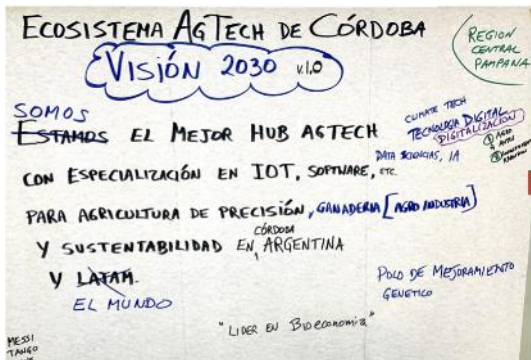 ECOSISTEMA AGTECH DE CÓRDOBA
VISIÓN 2030 V.1.0
REGION
CENTRAL
PAMPANA
SOMOS
ESTAMOS EL MEJOR HUB AGTECH
CLIMATE TECH
TECNOLOGIA DIGITAL
DIGITALIZACION
DATA SCIENCIAS, IA
CON ESPECIALIZACIÓN EN IOT, SOFTWARE, ETC
PARA AGRICULTURA DE PRECISIÓN, GANADERIA [AGRO INDUSTRIA]
CÓRDOBA
Y SUSTENTABILIDAD EN ARGENTINA
Y LATAM.
EL MUNDO
POLO DE MEJORAMIENTO
GENETICO
"LIDER EN Bioeconomia"
MESSI
TANGO